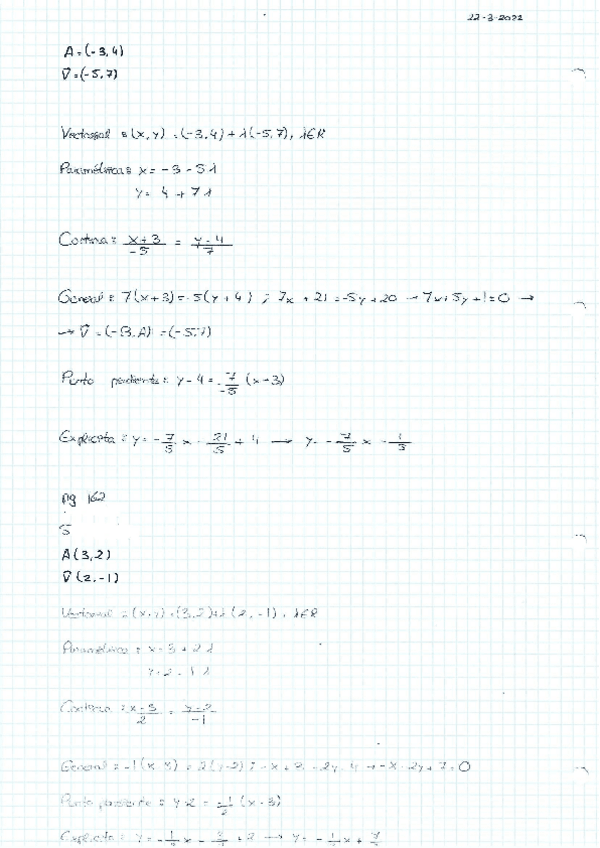 22-3-2022
A=(-3,4)
V̄=(-5,7)
Vectorial = (x,y) = (-3,4) + λ(-5,7), λ∈R
Paramétricas: x = -3 - 5λ
y = 4 + 7λ
Contina: x+3/-5 = y-4/7
General: 7(x+3) = -5(y+4) ; 7x + 21 = -5y + 20 → 7x+5y+1=0 →
→ V̄ = (-B,A) = (-5,7)
Punto pendiente: y-4 = 7/-5 (x+3)
Explicita: y = -7/5 x - 21/5 + 4 → y = -7/5 x - 1/5
pg 162
5
A(3,2)
V̄(2,-1)
Vectorial = (x,y) = (3,2)+λ(2,-1), λ∈R
Paramétricas: x = 3 + 2λ
y = 2 - 1λ
Contina: x-3/2 = y-2/-1
General = -1(x-3) = 2(y-2) ; -x + 3 = 2y-4 → -x-2y+7=0
Punto pendiente = y-2 = -1/2 (x-3)